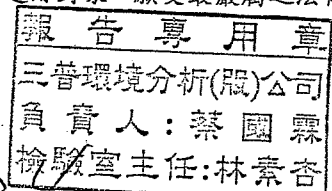 報告專用章
三普環境分析(股)公司
負責人：蔡國霖
檢驗室主任:林素杏